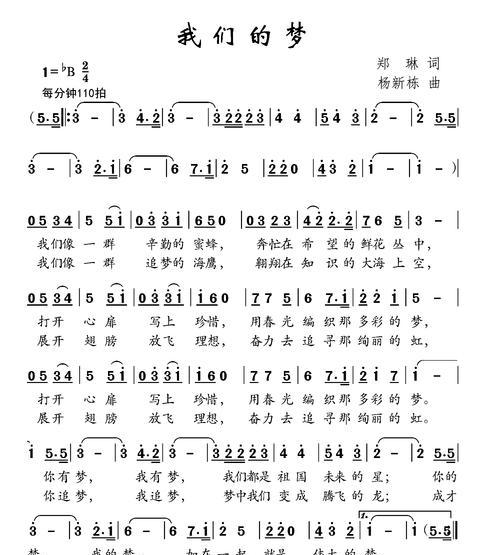 我们的梦
1=♭B 2/4
郑 琳 词
每分钟110拍
杨新栋 曲
(5·5‖:3 - 3 4·2 3 - 3 32223 4 4 54 3 2 - 2 5·5
3 - 3 2·1 6 - 6 7·1 2 5 220 04 3 1 - 1 -)
05 34 5 51 03 31 650 03 23 42 2·2 76 5 3 -
我们像 一 群 辛勤的 蜜蜂, 奔忙在 希 望的 鲜花 丛 中,
我们像 一 群 追梦的 海鹰, 翱翔在 知 识的 大海 上 空,
05 34 5 51 03 31 160 77 5 6 7·1 22 1 5 -
打开 心 扉 写上 珍惜, 用春 光 编 织那 多彩 的 梦,
展开 翅 膀 放飞 理想, 奋力 去 追 寻那 绚丽 的 虹,
05 34 5 51 03 31 160 77 5 6 7·1 21 7 1 -
打开 心 扉 写上 珍惜, 用春 光 编 织那 多彩 的 梦。
展开 翅 膀 放飞 理想, 奋力 去 追 寻那 绚丽 的 虹。
1 5·5 3 - 3 4·2 3 - 3 32223 4 4 54 3 2 - 2 5·5
你有 梦, 我有 梦, 我们都是 祖 国 未来 的 星; 你的
你追 梦, 我追 梦, 梦中我们 变 成 腾飞 的 龙; 成才
3 - 3 2·1 6 - 6 7·1 2 5 220 04 3 1 - 1 (5·5:‖
1.